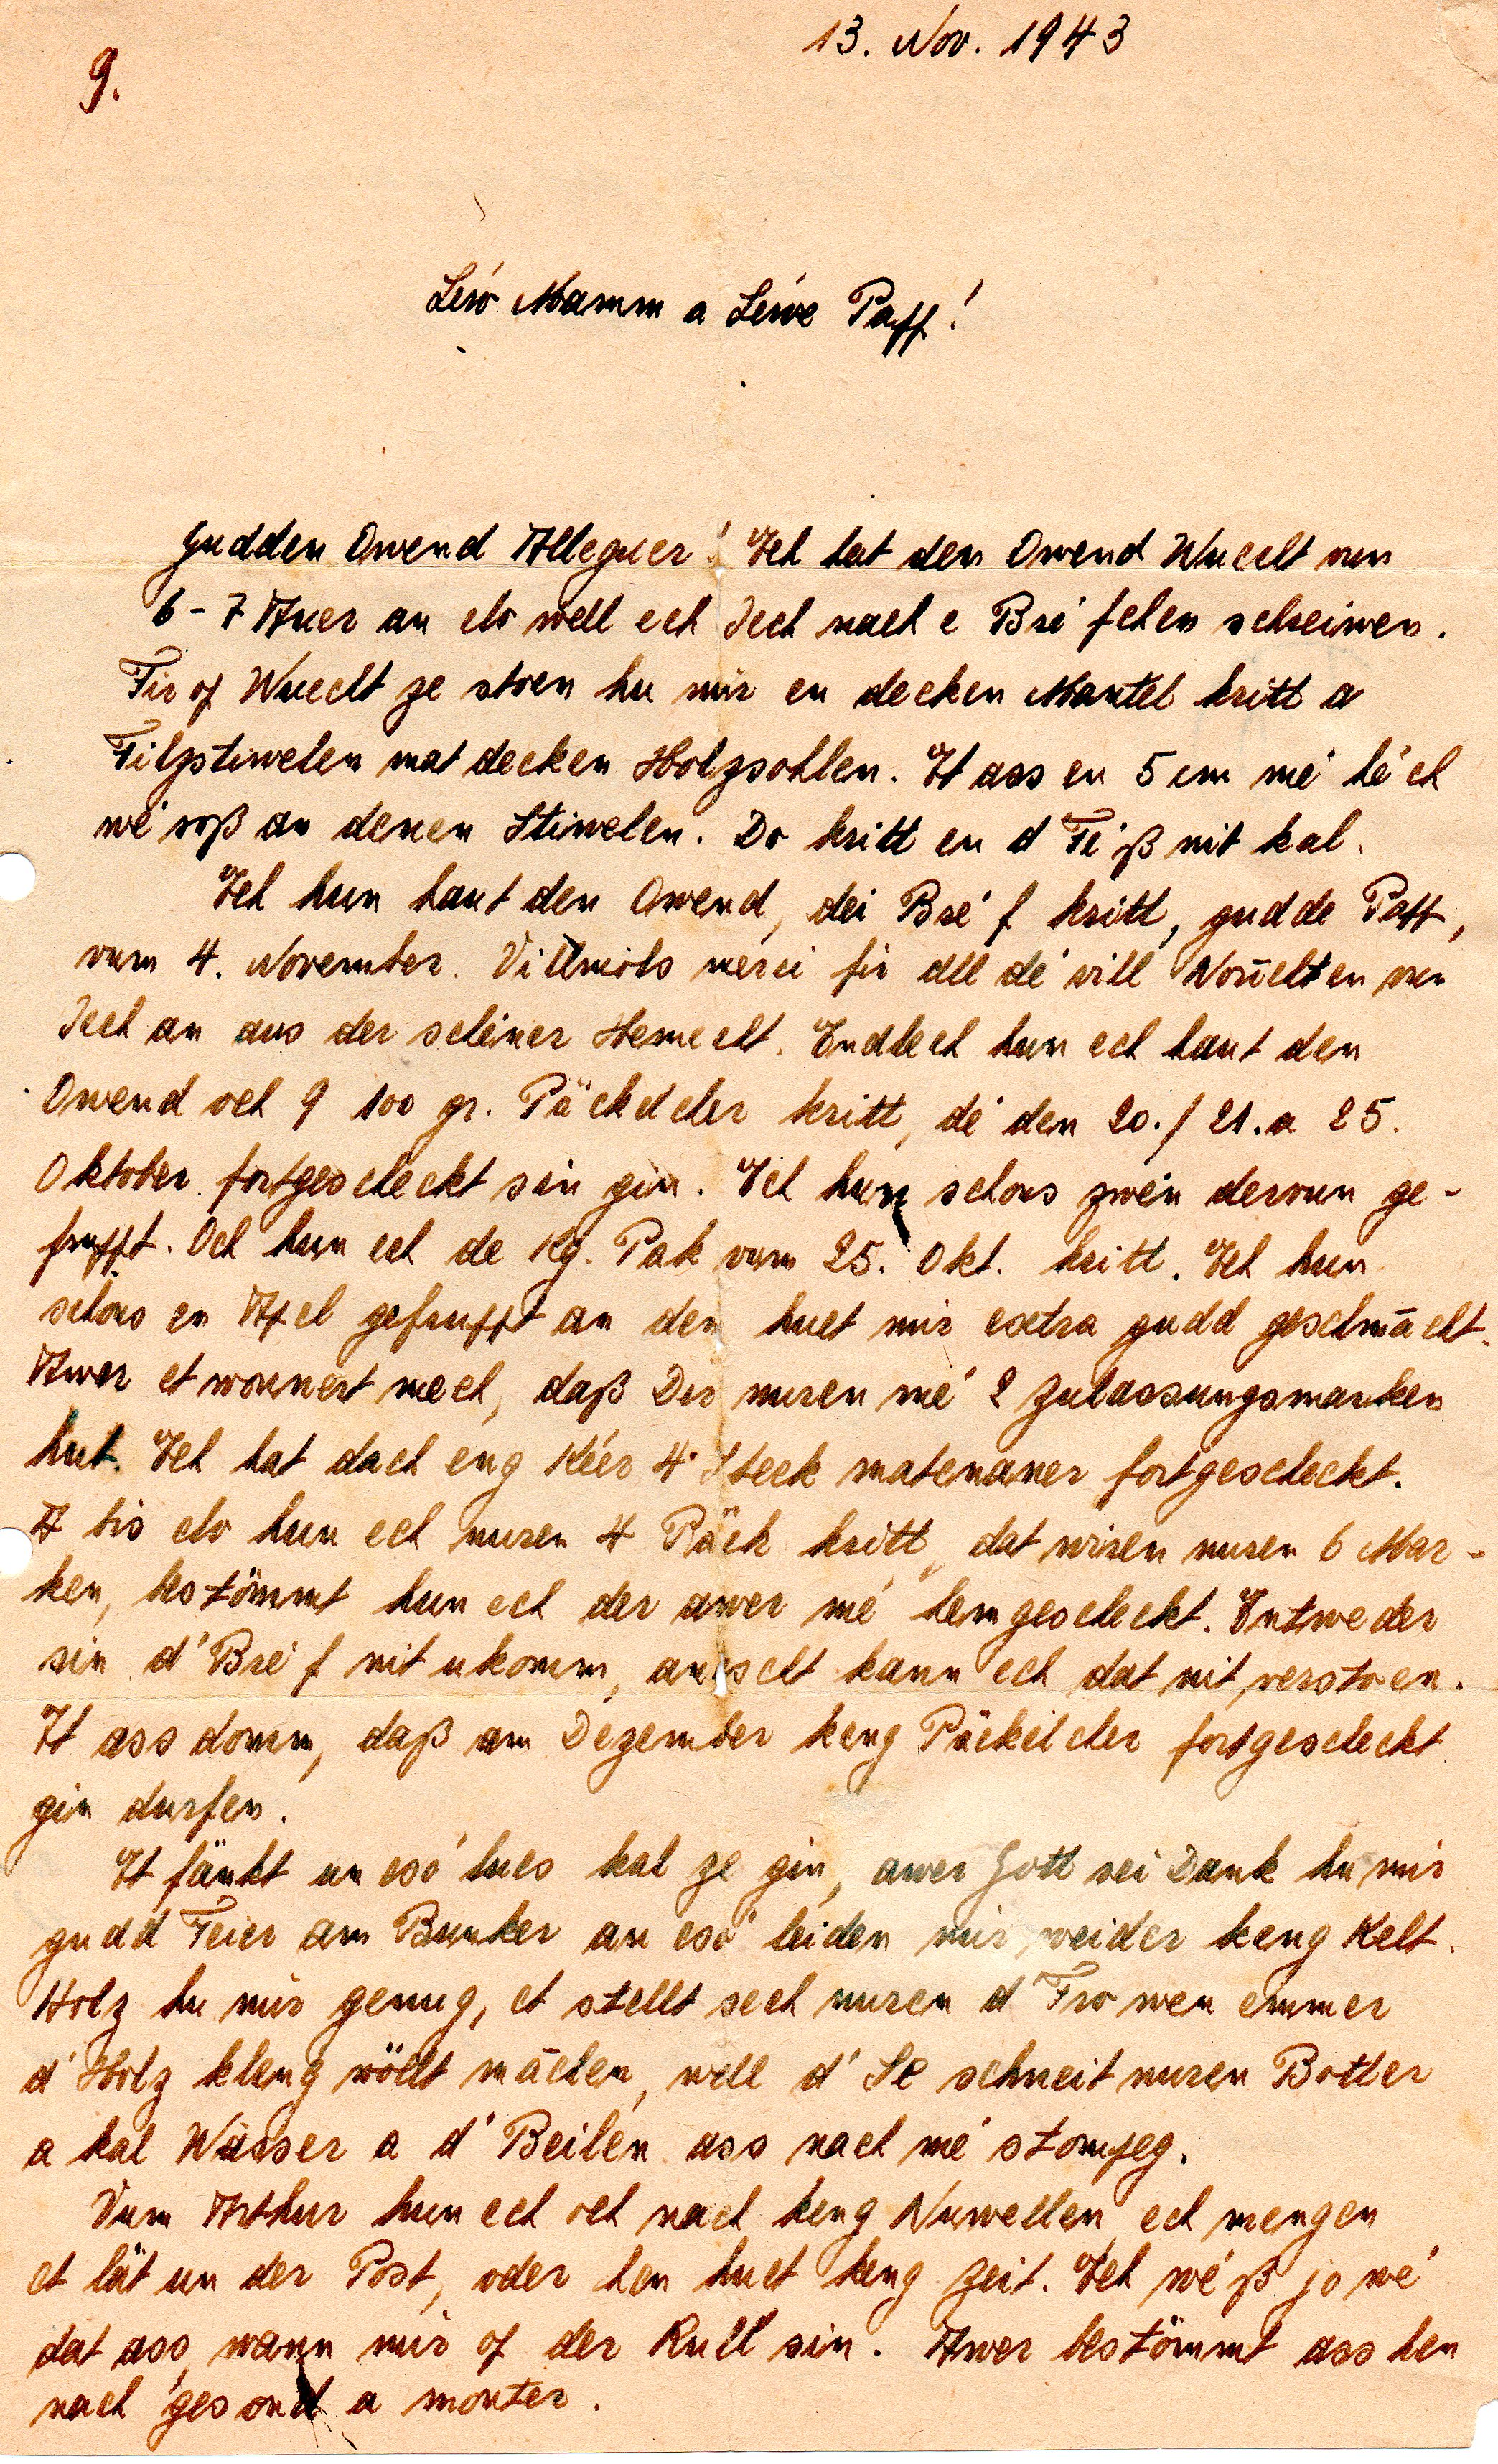 13. Nov. 1943
9.
Léiw Mamm a Léiwe Paff!
Gudden Owend Alleguer! Ech hat den Owend Wuecht vun
6-7 Auer an elo well ech Iech nach e Bré'fchen schreiwen.
Fir of Wuecht ze stoen hu mir en decken Mantel kritt a
Filzstiwelen mat decken Holzsohlen. Et ass en 5 cm mé hé'ch
wé soß an denen Stiwelen. Do kritt en d Fé'ß nit kal.
Ech hun haut den Owend, dei Bré'f kritt, gudde Paff,
vum 4. November. Villmols merci fir all dé vill Noūchten vun
Iech an aus der schéiner Hemecht. Endlech hun ech haut den
Owend och 9 100 gr. Päckelcher kritt, dé den 20./21. a 25.
Oktober fortgescheckt sin gin. Ech hun schons zwéin dervun ge-
frufft. Och hun ech de Kg. Pak vum 25. Okt. kritt. Ech hun
schons en Apel gefrufft an den huet mir extra gudd geschmācht.
Awer et wonnert mech, daß Der nuren mé 2 Zulassungsmarken
hut. Ech hat dach eng Kéier 4 Steck matenaner fortgescheckt.
A bis elo hun ech nuren 4 Päck kritt, dat wiren nuren 6 Mar-
ken, bestömmt hun ech der awer mé hemgescheckt. Entweder
sin d'Bré'f nit ukomm, anescht kann ech dat nit verstoen.
Et ass domm, daß am Dezember keng Päckelcher fortgescheckt
gin durfen.
Et fänkt un esó lues kal ze gin, awer Gott sei Dank hu mir
gudd Feier am Bunker an esó leiden mir weider keng Kelt.
Holz hu mir genug, et stellt sech nuren d Fro wen emmer
d'Holz kleng wöllt māchen, well d'Se schneit nuren Botter
a kal Wässer a d'Beilen ass nach mé stompeg.
Vum Arthur hun ech och nach keng Nuwellen ech mengen
et lät un der Post, oder hen huet keng Zeit. Ech wé'ß jo wé
dat ass, wann mir of der Rull sin. Awer bestömmt ass hen
nach gesond a monter.